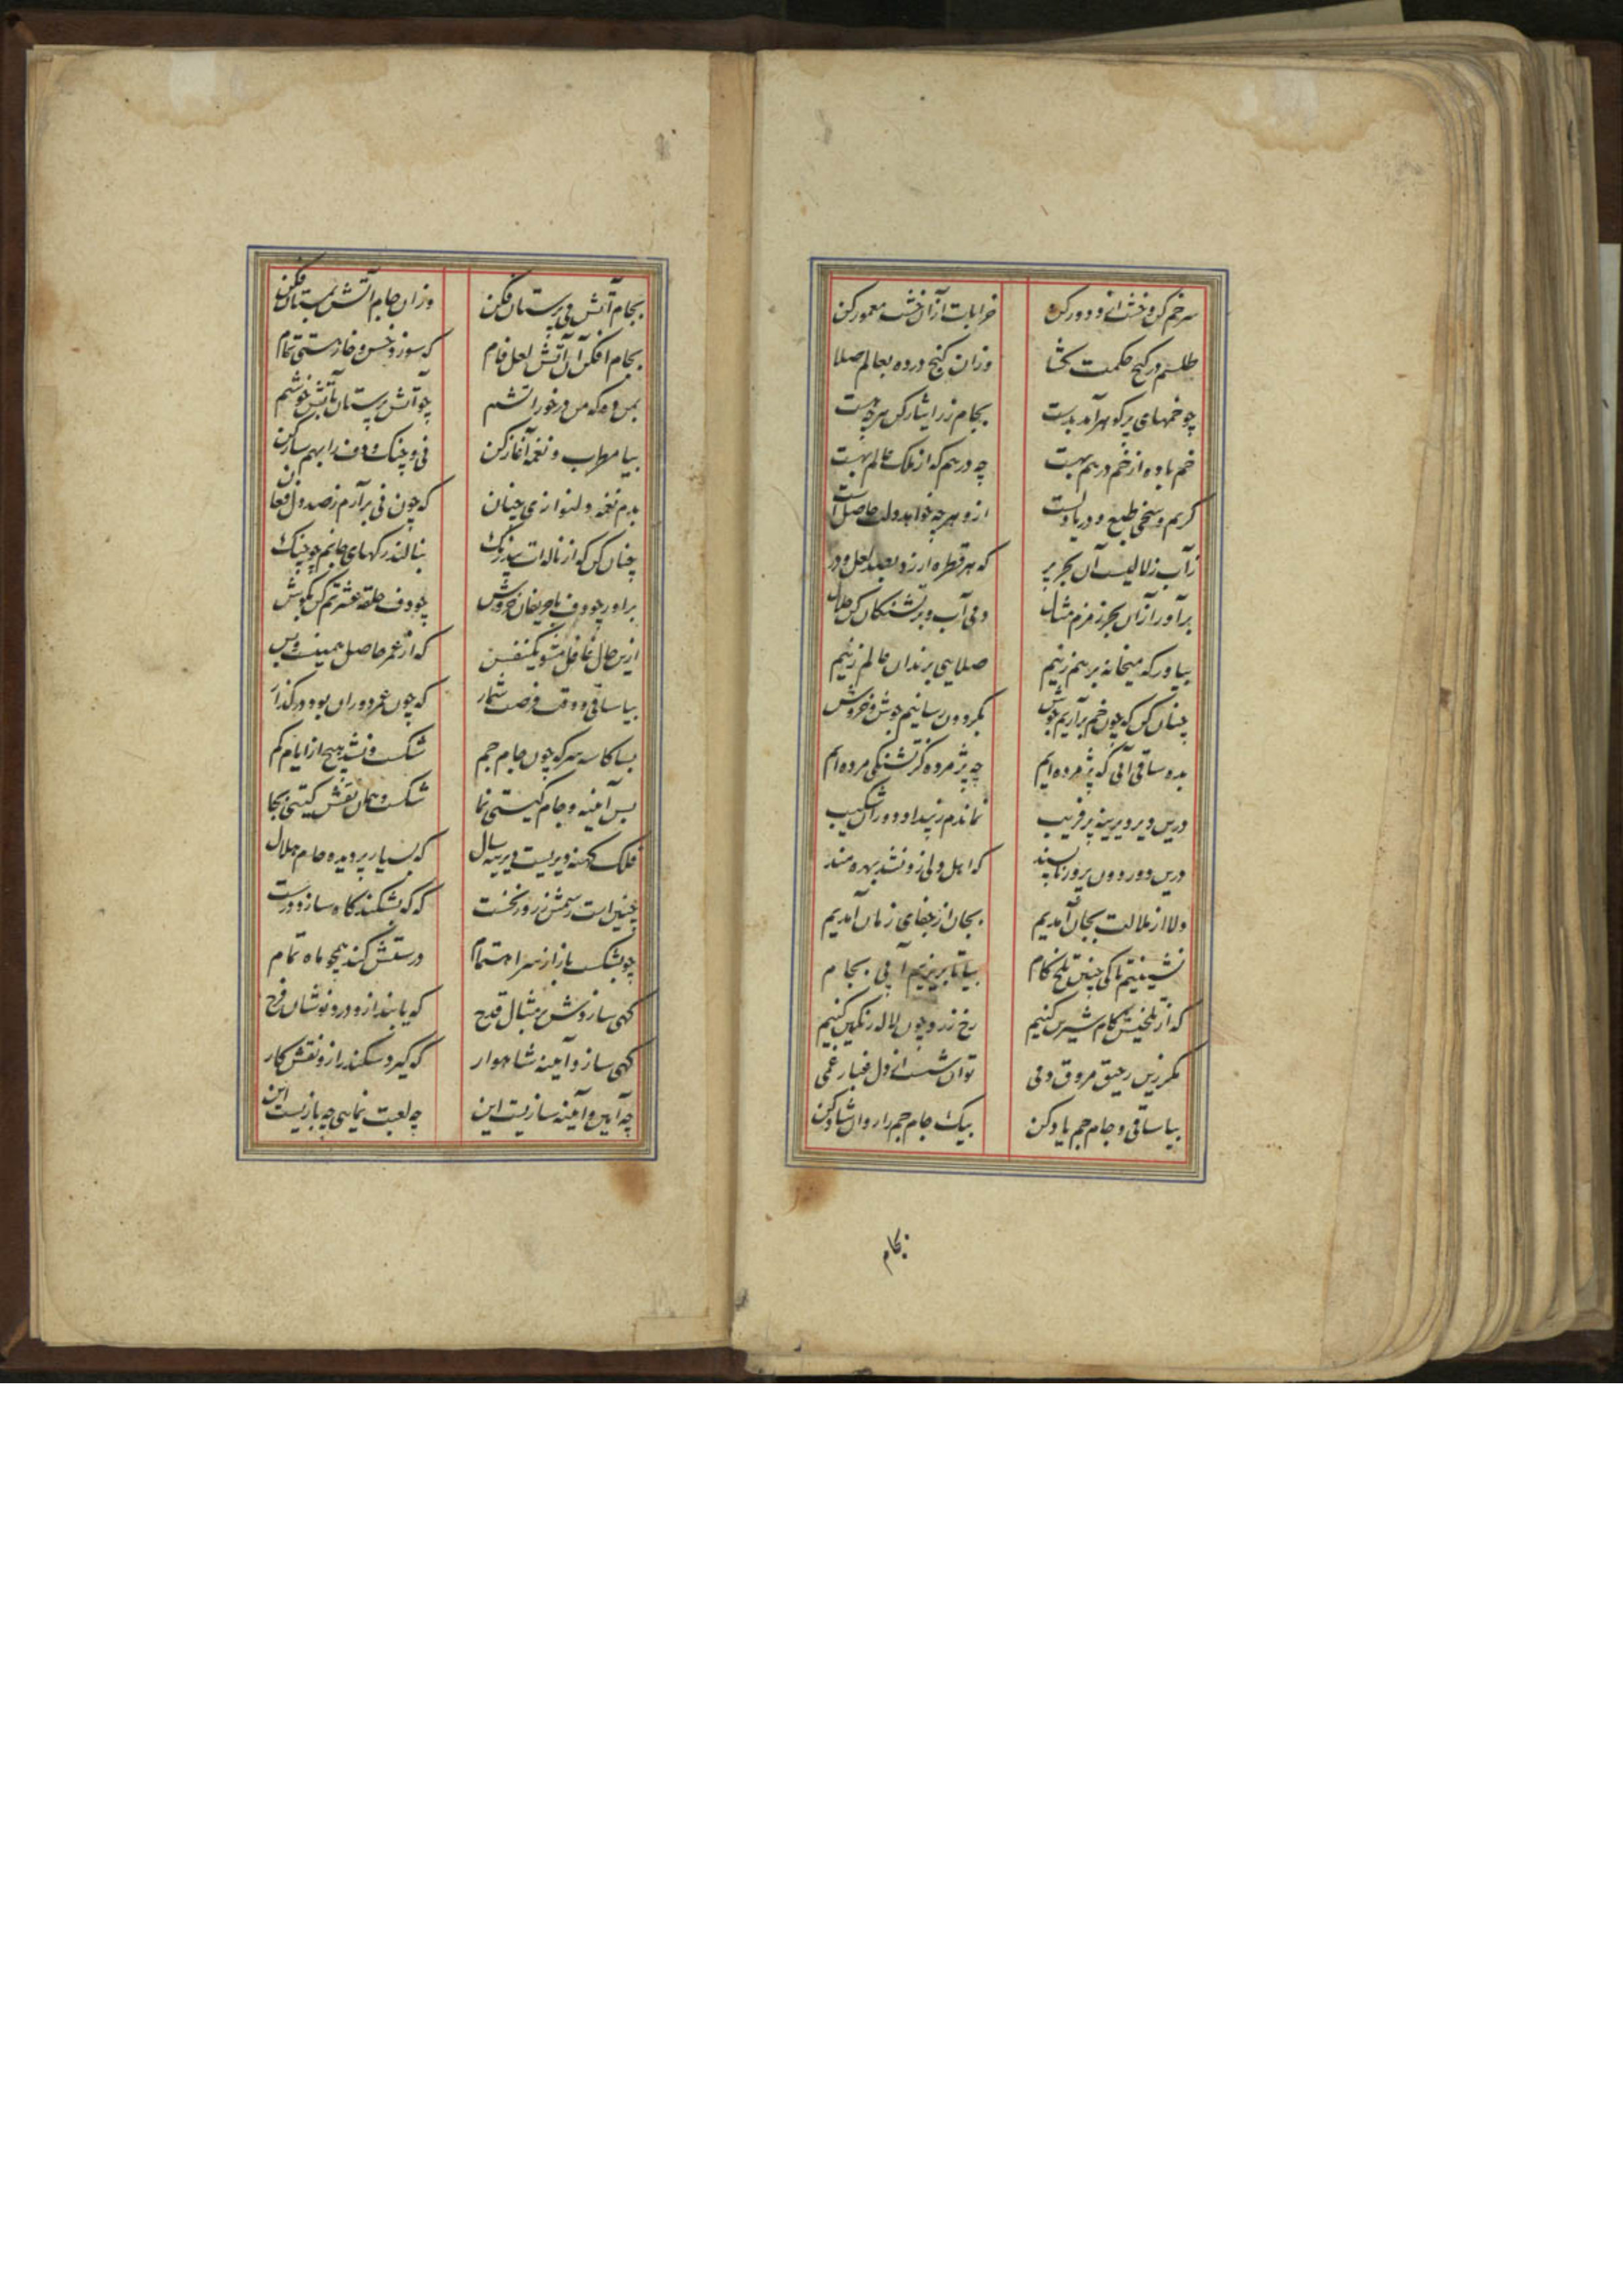 سر خم کن و خشت ازو دور کن خرابات ازان خشت معمور کن
طلسم در گنج حکمت گشا وزان گنج در ده بعالم صلا
چو خمهای پر گوهر آمد بدست بجام زر ایثار کن هرچه هست
خم باده از خم درهم بهست چه درهم که از ملک عالم بهست
کریم و سخی طبع و دریا دلست ازو هرچه خواهد دلت حاصل است
زآب زلالیست آن بحر پر که هر قطره ارزد بصد لعل و در
برآور ازان بحر زمزم مثال دمی آب و بر تشنگان کن حلال
بیاور که میخانه برهم زنیم صلایی برندان عالم زنیم
چنان کن که چون خم برآریم جوش بگردون رسانیم جوش و خروش
بده ساقی آبی که پژمرده ایم چه پژمرده کز تشنگی مرده ایم
درین دیر دیرینه پر فریب نماندم ز بیداد دوران شکیب
درین دور دون پرور ناپسند که اهل دلی زو نشد بهره مند
دلا از ملالت بجان آمدیم بجان از جفای زمان آمدیم
نشینیم تا کی چنین تلخ کام بیا تا بریزیم آبی بجام
که از تلخیش کام شیرین کنیم رخ زرد چون لاله رنگین کنیم
مگر زین رحیق مروق دمی توان شست از دل غبار غمی
بیا ساقی و جام جم یاد کن بیک جام جم را روان شاد کن
بجام
بجام آتش می پرستان فکن وزان جام آتش بمستان فکن
بجام افکن آن آتش لعل فام که سوزد خس و خار هستی تمام
بمن ده که من در خور آتشم چو آتش پرستان بآتش خوشم
بیا مطرب و نغمه آغاز کن نی و چنگ و دف را بهم ساز کن
بدم نغمه دلنوازی چنان که چون نی برآرم ز صد دل فغان
چنان کن که از ناله ات بیدرنگ بنالند رگهای جانم چو چنگ
برآور چو دف با حریفان خروش چو دف حلقه عشرتم کن بگوش
ازین حال غافل مشو یکنفس که از عمر حاصل همینست و بس
بیا ساقی و وقت فرصت شمار که چون عمر دوران بود در گذار
بسا کاسه سر که چون جام جم شکست و نشد هیچ از ایام کم
بس آیینه و جام گیتی نما شکست و همان نقش گیتی بجا
فلک کهنه دیریست دیرینه سال که بسیار پر دیده جام هلال
چنین است رسمش ز روز نخست که گه بشکند گاه سازد درست
چو بشکست باز از سر اهتمام درستش کند همچو ماه تمام
گهی سازدش بر مثال قدح که یابند ازو درد نوشان فرح
گهی سازد آیینه شاهوار که گیرد سکندر ازو نقش کار
چه آیین و آیینه سازیست این چه لعبت نمایی چه بازیست این